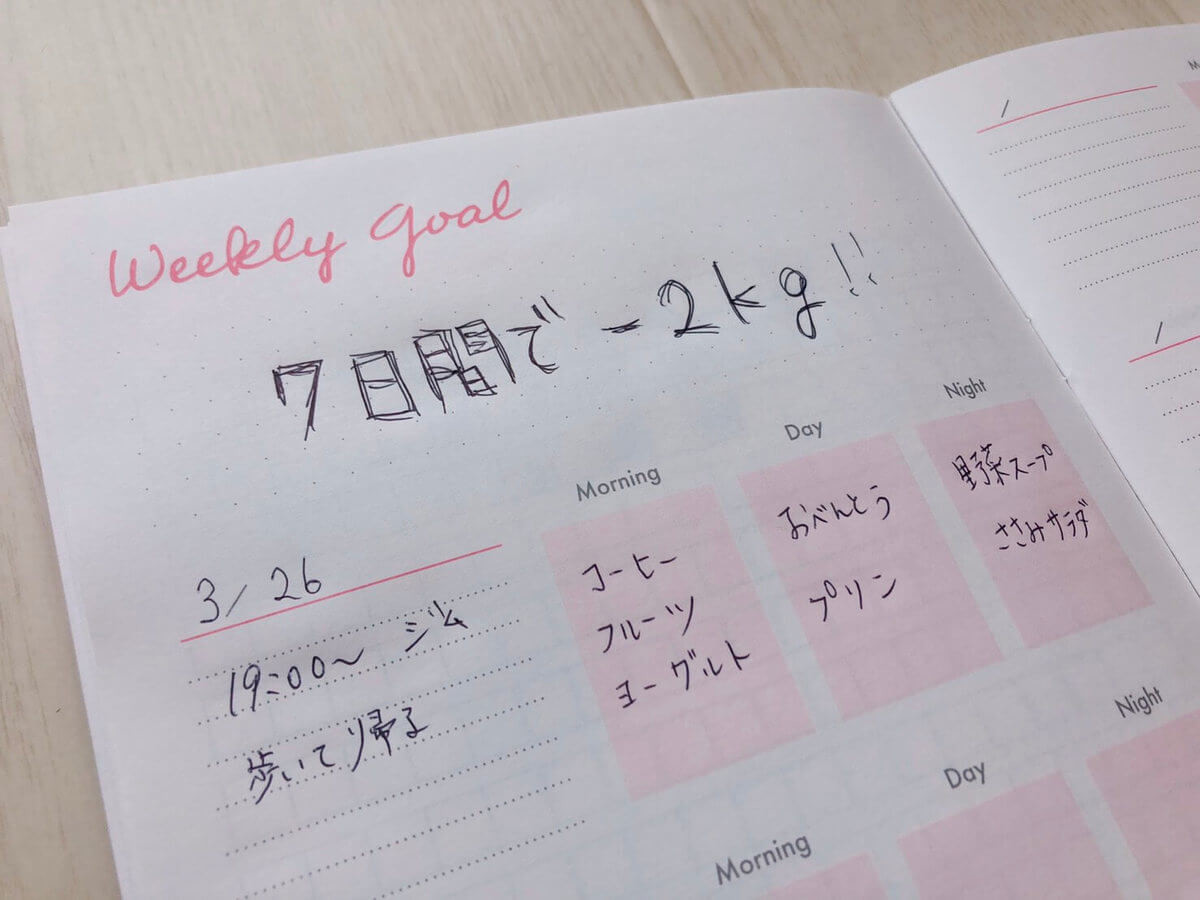 Weekly Goal
7日間で -2kg!!
3/26
19:00〜 ジム
歩いて帰る
Morning
コーヒー
フルーツ
ヨーグルト
Day
おべんとう
プリン
Night
野菜スープ
ささみサラダ
Morning
Day
Night
/
/